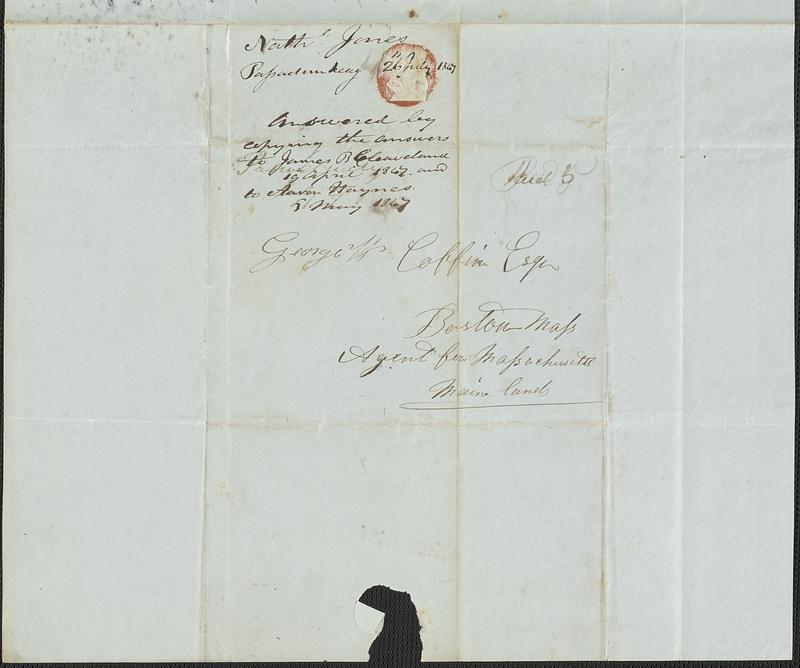 Nathl Jones
Passadumkeag 26 July 1847
Answered by
copying the answers
to James B Cleaveland
19 April 1847. and
to Aaron Haynes
5 May 1847
Paid 5
George W Coffin Esqr
Boston Mass
Agent for Massachusetts
Maine lands